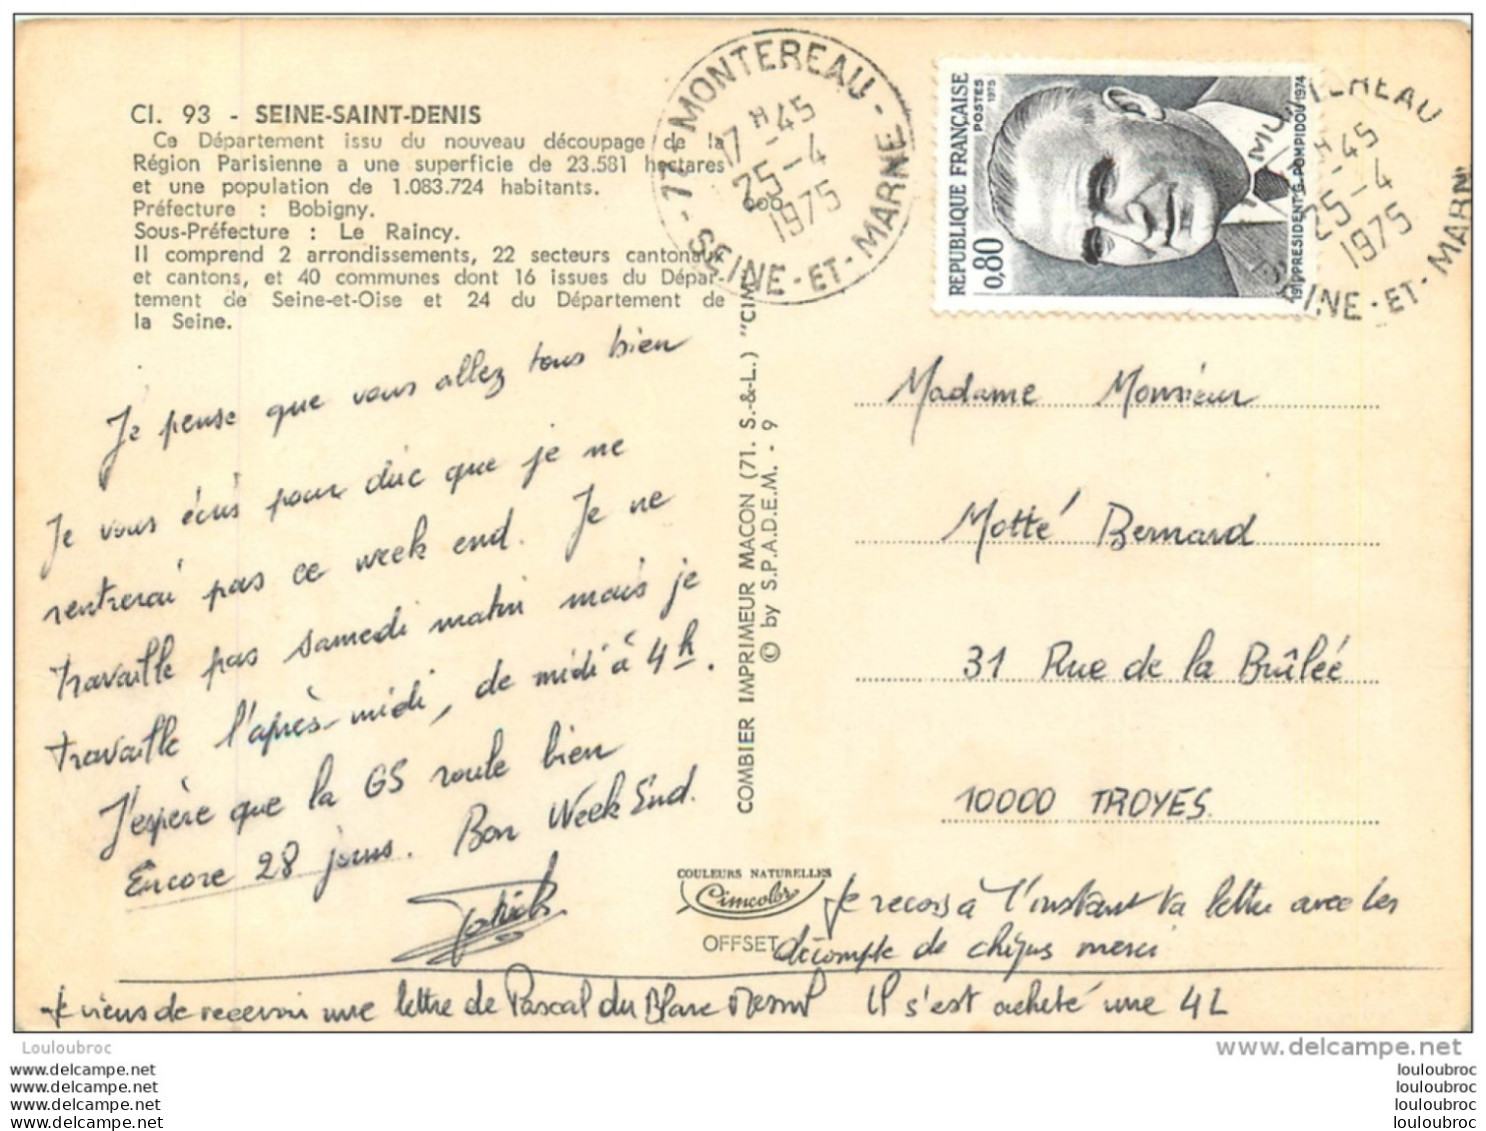 CI. 93 - SEINE-SAINT-DENIS
Ce Département issu du nouveau découpage de la
Région Parisienne a une superficie de 23.581 hectares
et une population de 1.083.724 habitants.
Préfecture : Bobigny.
Sous-Préfecture : Le Raincy.
Il comprend 2 arrondissements, 22 secteurs cantonaux
et cantons, et 40 communes dont 16 issues du Dépar-
tement de Seine-et-Oise et 24 du Département de
la Seine.
Je pense que vous allez tous bien
Je vous écris pour dire que je ne
rentrerai pas ce week end. Je ne
travaille pas samedi matin mais je
travaille l'après-midi, de midi à 4h.
J'espère que la GS roule bien
Encore 28 jours. Bon Week End.
77 - MONTEREAU -
17 H 45
25 - 4
1975
SEINE - ET - MARNE
REPUBLIQUE FRANÇAISE
POSTES 1975
0,80
PRESIDENT G. POMPIDOU 1974
MONTEREAU
H 45
25 - 4
1975
SEINE - ET - MARN
COMBIER IMPRIMEUR MACON (71. S.-&-L.) "CIM"
© by S.P.A.D.E.M. - 9
Madame Monsieur
Motté Bernard
31 Rue de la Brûlée
10000 TROYES.
COULEURS NATURELLES
Cimcolor
OFFSET
Je reçois à l'instant ta lettre avec les
décompte de chèques merci
Je viens de recevoir une lettre de Pascal du Blanc Mesnil Il s'est acheté une 4L
Louloubroc
www.delcampe.net
louloubroc
louloubroc
louloubroc
louloubroc
www.delcampe.net
www.delcampe.net
www.delcampe.net
www.delcampe.net